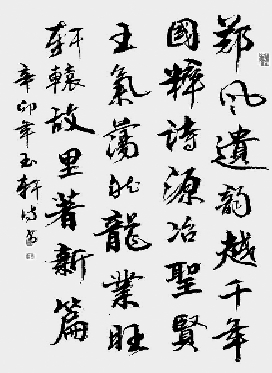 郑风遺韵越千年
國粹詩源冶聖賢
王氣蕩龍業旺
軒轅故里著新篇
辛卯年玉軒